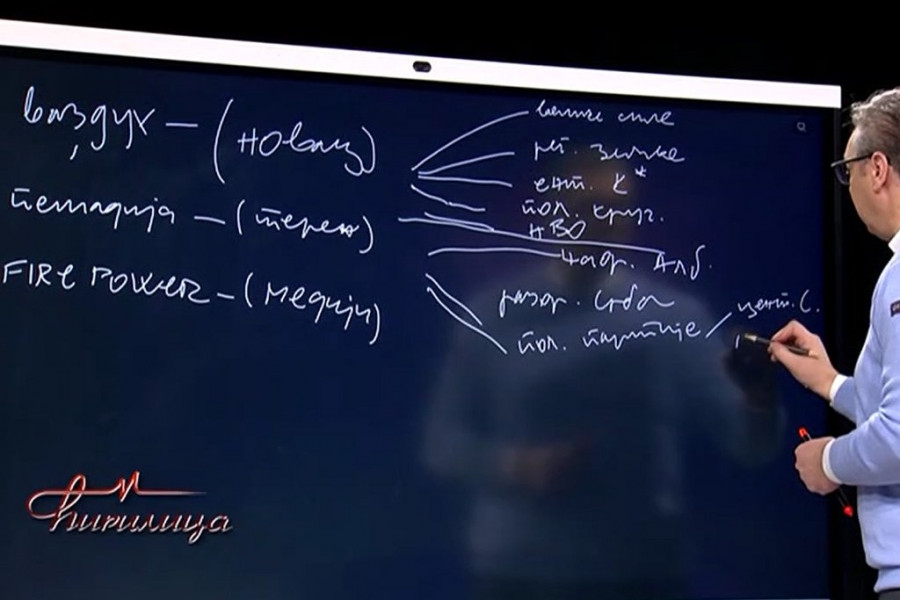 ваздух – (новац)
пешадија – (терен)
FIRE POWER – (медији)
велике силе
рег. земље
ент. К*
пол. круг.
НВО
нар. Алб.
разор. Срба
пол. партије
цент. С.
Ћирилица